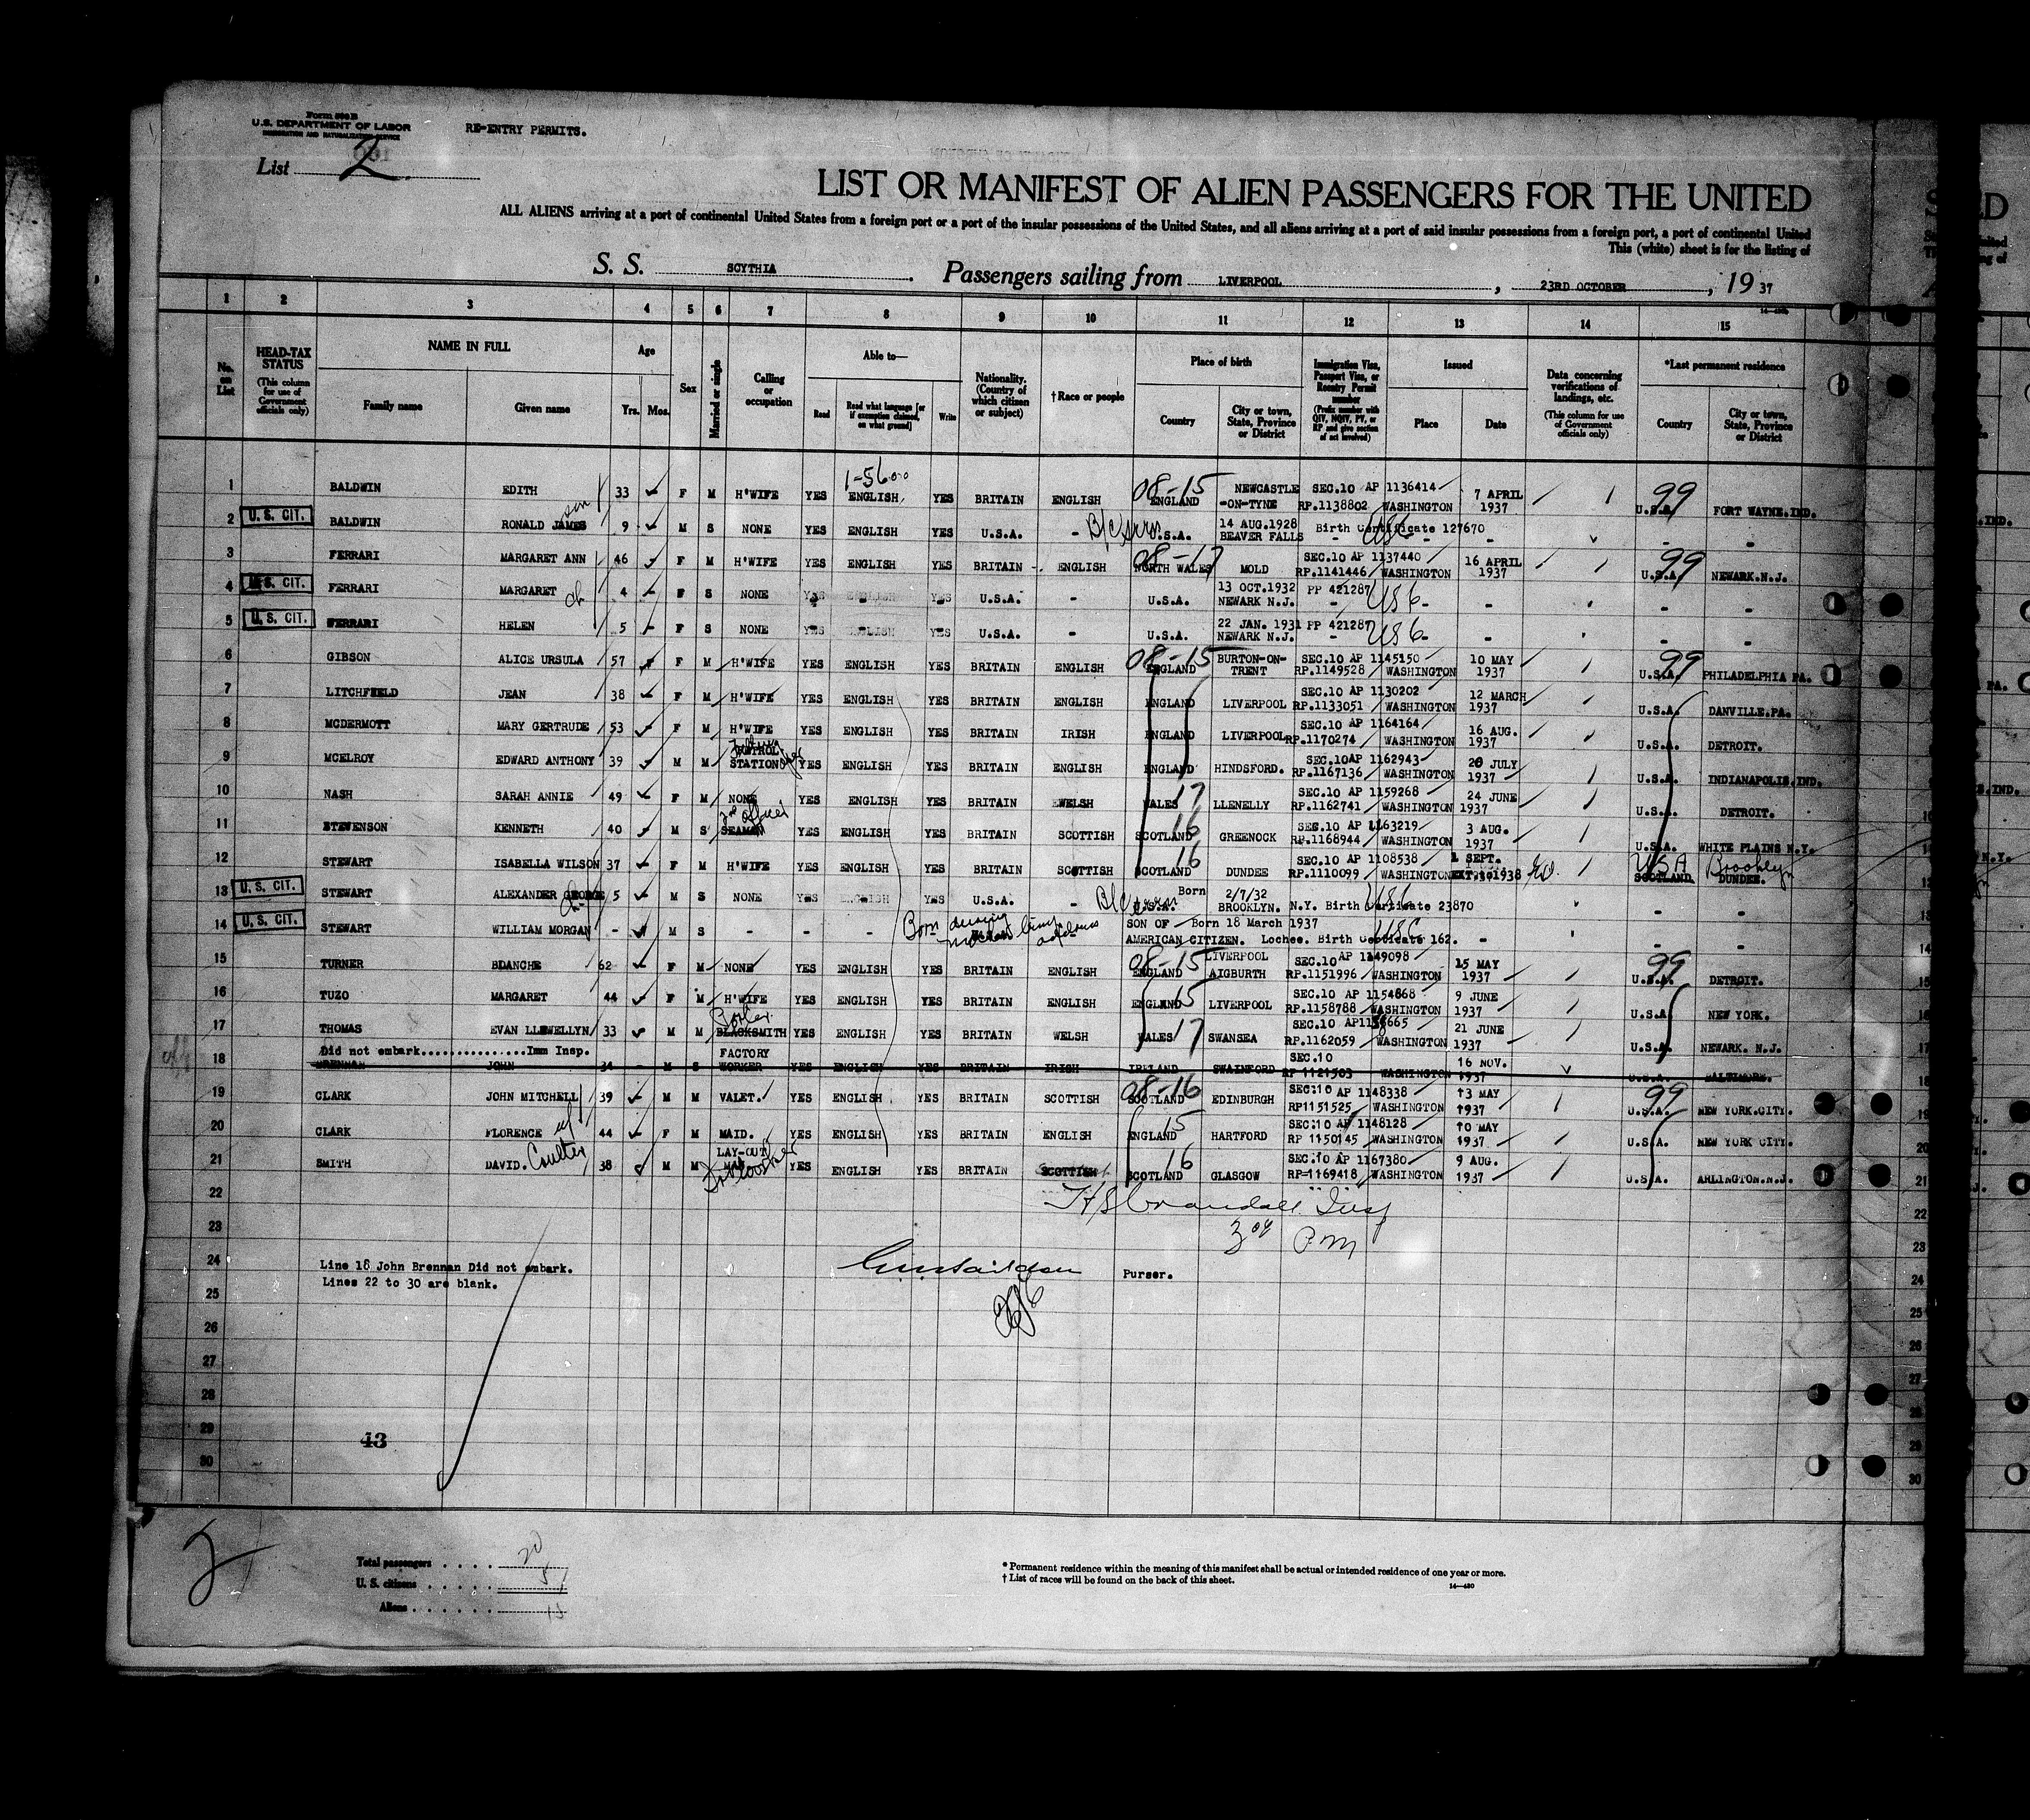 Form 500 B
U.S. DEPARTMENT OF LABOR
IMMIGRATION AND NATURALIZATION SERVICE
RE-ENTRY PERMITS.
List 2
LIST OR MANIFEST OF ALIEN PASSENGERS FOR THE UNITED
ALL ALIENS arriving at a port of continental United States from a foreign port or a port of the insular possessions of the United States, and all aliens arriving at a port of said insular possessions from a foreign port, a port of continental United
This (white) sheet is for the listing of
S. S. SCYTHIA. Passengers sailing from LIVERPOOL, 23RD OCTOBER, 1937
1 2 3 4 5 6 7 8 9 10 11 12 13 14 15
No. on List
HEAD-TAX STATUS (This column for use of Government officials only)
NAME IN FULL Family name Given name
Age Yrs. Mos.
Sex
Married or single
Calling or occupation
Able to— Read Read what language [or if exemption claimed, on what ground] Write
Nationality. (Country of which citizen or subject)
†Race or people
Place of birth Country City or town, State, Province or District
Immigration Visa, Passport Visa, or Reentry Permit number (Prefix number with QIV, NQIV, PV, or RP and give section of act involved)
Issued Place Date
Data concerning verifications of landings, etc. (This column for use of Government officials only)
*Last permanent residence Country City or town, State, Province or District
1 BALDWIN EDITH 33 F M H'WIFE YES 1-5600 ENGLISH YES BRITAIN ENGLISH 08-15 ENGLAND NEWCASTLE -ON-TYNE SEC.10 AP 1136414 RP.1138802 WASHINGTON 7 APRIL 1937 99 U.S.A. FORT WAYNE.IND.
2 U. S. CIT. BALDWIN RONALD JAMES son 9 M S NONE YES ENGLISH YES U.S.A. - U.S.A. 14 AUG.1928 BEAVER FALLS Birth Certificate 127670 USC - -
3 FERRARI MARGARET ANN 46 F M H'WIFE YES ENGLISH YES BRITAIN ENGLISH 08-17 NORTH WALES MOLD SEC.10 AP 1137440 RP.1141446 WASHINGTON 16 APRIL 1937 99 U.S.A. NEWARK.N.J.
4 U. S. CIT. FERRARI MARGARET ch 4 F S NONE YES - YES U.S.A. - U.S.A. 13 OCT.1932 NEWARK N.J. PP 421287 USC - - - -
5 U. S. CIT. FERRARI HELEN 5 F S NONE YES ENGLISH YES U.S.A. - U.S.A. 22 JAN. 1931 NEWARK N.J. PP 421287 USC - - - -
6 GIBSON ALICE URSULA 57 F M H'WIFE YES ENGLISH YES BRITAIN ENGLISH 08-15 ENGLAND BURTON-ON-TRENT SEC.10 AP 1145150 RP.1149528 WASHINGTON 10 MAY 1937 99 U.S.A. PHILADELPHIA PA.
7 LITCHFIELD JEAN 38 F M H'WIFE YES ENGLISH YES BRITAIN ENGLISH ENGLAND LIVERPOOL SEC.10 AP 1130202 RP.1133051 WASHINGTON 12 MARCH 1937 U.S.A. DANVILLE.PA.
8 MCDERMOTT MARY GERTRUDE 53 F M H'WIFE YES ENGLISH YES BRITAIN IRISH ENGLAND LIVERPOOL SEC.10 AP 1164164 RP.1170274 WASHINGTON 16 AUG. 1937 U.S.A. DETROIT.
9 MCELROY EDWARD ANTHONY 39 M M STATION YES ENGLISH YES BRITAIN ENGLISH ENGLAND HINDSFORD. SEC.10AP 1162943 RP.1167136 WASHINGTON 20 JULY 1937 U.S.A. INDIANAPOLIS.IND.
10 NASH SARAH ANNIE 49 F M NONE YES ENGLISH YES BRITAIN WELSH WALES 17 LLENELLY SEC.10 AP 1159268 RP.1162741 WASHINGTON 24 JUNE 1937 U.S.A. DETROIT.
11 STEVENSON KENNETH 40 M S SEAMAN officer YES ENGLISH YES BRITAIN SCOTTISH SCOTLAND 16 GREENOCK SEC.10 AP 1163219 RP.1168944 WASHINGTON 3 AUG. 1937 U.S.A. WHITE PLAINS N.Y.
12 STEWART ISABELLA WILSON 37 F M H'WIFE YES ENGLISH YES BRITAIN SCOTTISH SCOTLAND 16 DUNDEE SEC.10 AP 1108538 RP.1110099 WASHINGTON 1 SEPT. 1938 USA Brooklyn SCOTLAND DUNDEE.
13 U. S. CIT. STEWART ALEXANDER GEORGE 5 M S NONE YES ENGLISH YES U.S.A. - U.S.A. Born 2/7/32 BROOKLYN. N.Y. Birth Certificate 23870 USC - -
14 U. S. CIT. STEWART WILLIAM MORGAN - M S - - - - Born during SON OF AMERICAN CITIZEN. Born 18 March 1937 Lochee. Birth Certificate 162. USC - - -
15 TURNER BLANCHE 62 F M NONE YES ENGLISH YES BRITAIN ENGLISH 08-15 ENGLAND LIVERPOOL AIGBURTH SEC.10 AP 1149098 RP.1151996 WASHINGTON 15 MAY 1937 99 U.S.A. DETROIT.
16 TUZO MARGARET 44 F M H'WIFE YES ENGLISH YES BRITAIN ENGLISH ENGLAND 15 LIVERPOOL SEC.10 AP 1154868 RP.1158788 WASHINGTON 9 JUNE 1937 U.S.A. NEW YORK.
17 THOMAS EVAN LLEWELLYN 33 M M BLACKSMITH YES ENGLISH YES BRITAIN WELSH WALES 17 SWANSEA SEC.10 RP.1162059 WASHINGTON 21 JUNE 1937 U.S.A. NEWARK. N.J.
Did not embark...............Imm Insp.
18 BRENNAN JOHN 34 - M S FACTORY WORKER YES ENGLISH YES BRITAIN IRISH IRELAND SWAINFORD SEC.10 RP 1121503 WASHINGTON 16 NOV. 1937 U.S.A. BALTIMORE.
19 CLARK JOHN MITCHELL 39 M M VALET. YES ENGLISH YES BRITAIN SCOTTISH 08-16 SCOTLAND EDINBURGH SEC:10 AP 1148338 RP1151525 WASHINGTON 13 MAY 1937 99 U.S.A. NEW YORK.CITY.
20 CLARK FLORENCE wf 44 F M MAID. YES ENGLISH YES BRITAIN ENGLISH ENGLAND 15 HARTFORD SEC:10 AP 1148128 RP 1150145 WASHINGTON 10 MAY 1937 U.S.A. NEW YORK CITY.
21 SMITH DAVID. Coulter 38 M M LAY-OUT MAN YES ENGLISH YES BRITAIN SCOTTISH SCOTLAND 16 GLASGOW SEC:10 AP 1167380 RP-1169418 WASHINGTON 9 AUG. 1937 U.S.A. ARLINGTON.N.J.
22
23
24 Line 18 John Brennan Did not embark. Purser.
Lines 22 to 30 are blank.
25
26
27
28
29
43
30
2
Total passengers . . . . 20
U. S. citizens . . . . . . 5
Aliens . . . . . . 15
* Permanent residence within the meaning of this manifest shall be actual or intended residence of one year or more.
† List of races will be found on the back of this sheet.
14—430